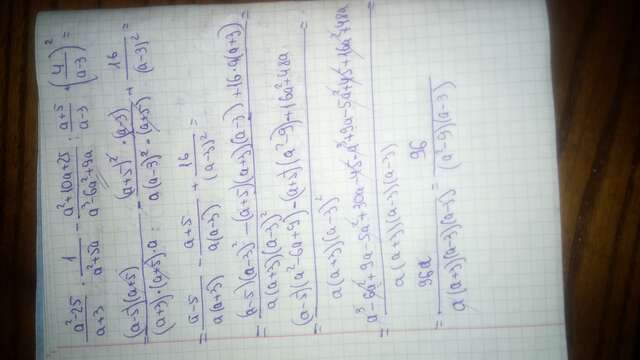 (a²-25)/(a+3) · 1/(a²+5a) - (a²+10a+25)/(a³-6a²+9a) : (a+5)/(a-3) + (4/(a-3))² =
= ((a-5)(a+5))/((a+3)·(a+5)·a) - ((a+5)²·(a-3))/(a(a-3)²·(a+5)) + 16/(a-3)² =
= (a-5)/(a(a+3)) - (a+5)/(a(a-3)) + 16/(a-3)² =
= ((a-5)(a-3)²-(a+5)(a+3)(a-3)+16·a(a+3))/(a(a+3)(a-3)²) =
= ((a-5)(a²-6a+9)-(a+5)(a²-9)+16a²+48a)/(a(a+3)(a-3)²) =
= (a³-6a²+9a-5a²+30a-45-a³+9a-5a²+45+16a²+48a)/(a(a+3)(a-3)(a-3)) =
= 96a/(a(a+3)(a-3)(a-3)) = 96/((a²-9)(a-3))